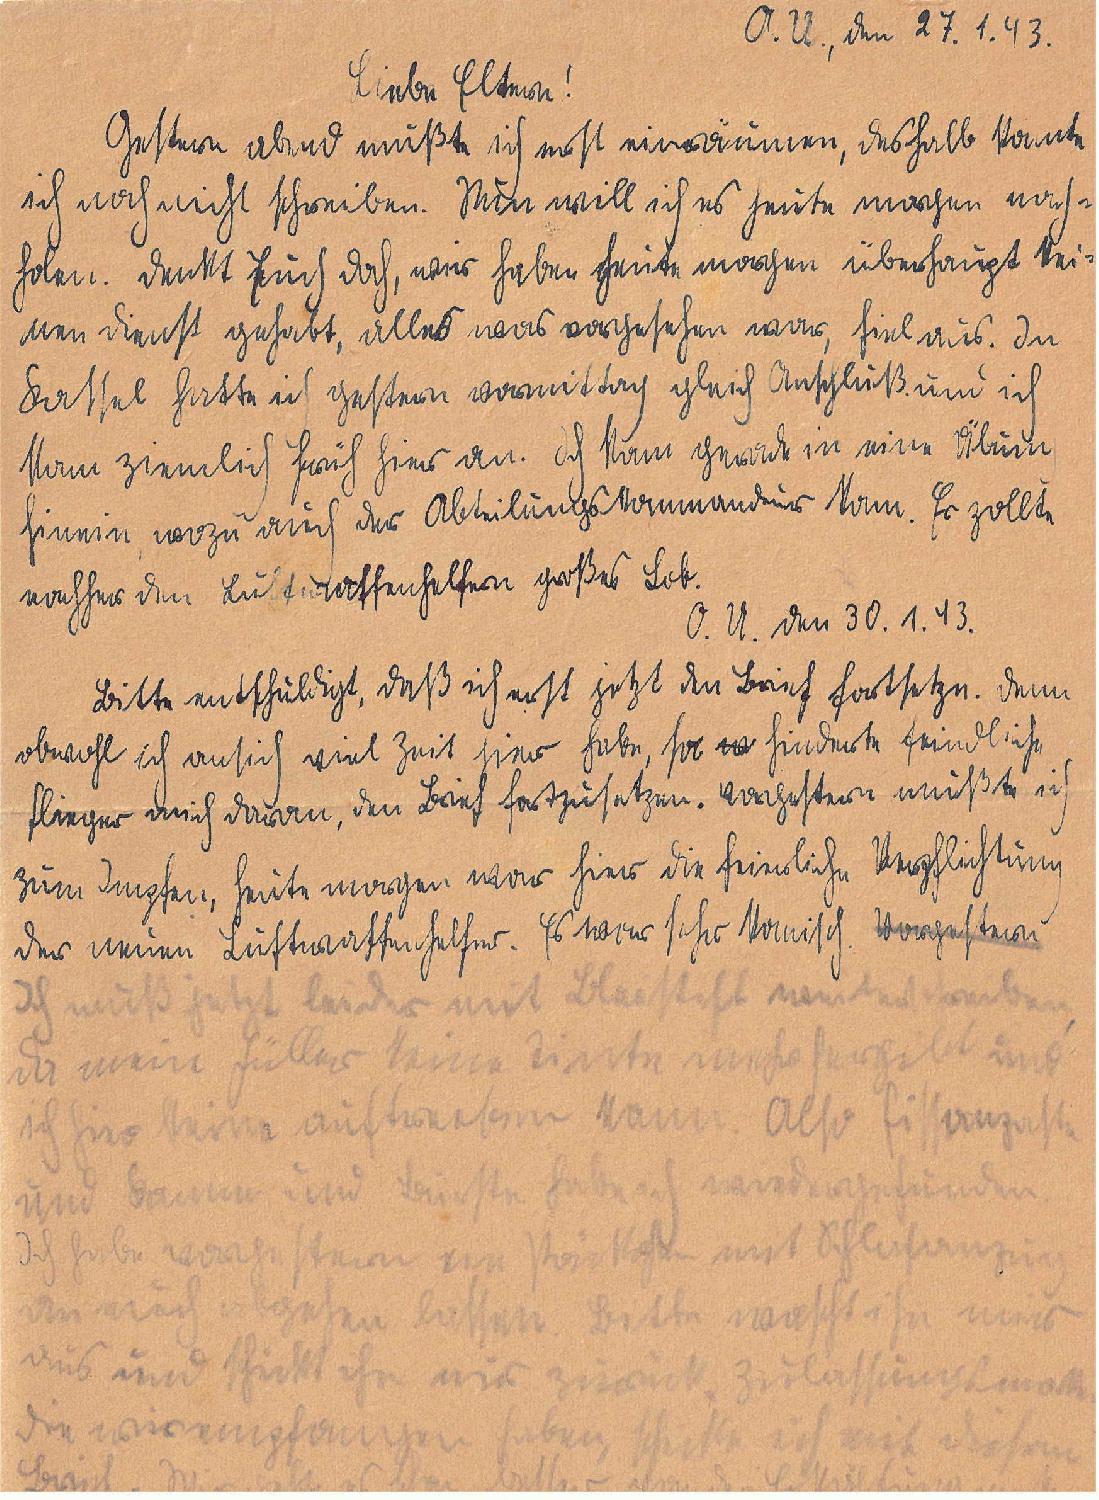 O. U., den 27. 1. 43.
Liebe Eltern!
Gestern abend mußte ich erst einräumen, deshalb konnte
ich noch nicht schreiben. Nun will ich es heute morgen nach-
holen. Denkt Euch doch, wir haben heute morgen überhaupt kei-
nen Dienst gehabt, alles was vorgesehen war, fiel aus. In
Kassel hatte ich gestern vormittag gleich Anschluß und ich
kam ziemlich früh hier an. Ich kam gerade in eine Übung
hinein, wozu auch der Abteilungskommandeur kam. Er zollte
nachher den Luftwaffenhelfern großes Lob.
O. U. den 30. 1. 43.
Bitte entschuldigt, daß ich erst jetzt den Brief fortsetze. Denn
obwohl ich ansich viel Zeit hier habe, so hinderte feindliche
Flieger mich daran, den Brief fortzusetzen. Vorgestern mußte ich
zum Impfen, heute morgen war hier die feierliche Verpflichtung
der neuen Luftwaffenhelfer. Es war sehr komisch. Vorgestern
Ich muß jetzt leider mit Bleistift weiterschreiben,
da mein Füller keine Tinte mehr hergibt und
ich hier keine auftreiben kann. Also
und Kamm und Bürste habe ich wiedergefunden.
Ich habe vorgestern ein Päckchen mit Schlafanzug
an euch abgehen lassen. Bitte wascht ihn mir
aus und schickt ihn mir zurück. Zulassungsmarke
die wir empfangen haben, schicke ich mit diesem
Brief.